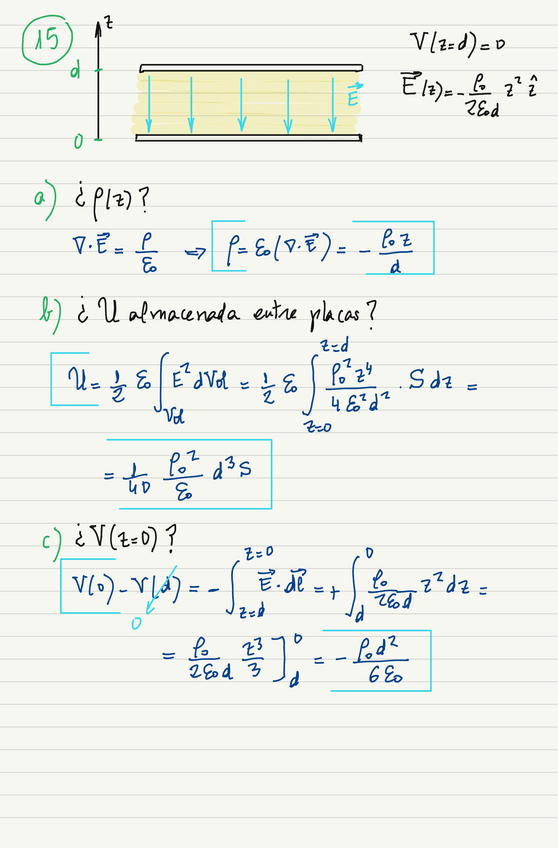 15
z
V(z=d)=0
d
E⃗(z)=-ρ₀/2ε₀d z² ẑ
E⃗
0
a) ¿ρ(z)?
∇·E⃗ = ρ/ε₀ → ρ=ε₀(∇·E⃗)= - ρ₀z/d
b) ¿U almacenada entre placas?
U= 1/2 ε₀ ∫_Vol E² dVol = 1/2 ε₀ ∫_{z=0}^{z=d} ρ₀²z⁴/4ε₀²d² · S dz =
= 1/40 ρ₀²/ε₀ d³S
c) ¿V(z=0)?
V(0)-V(d) = - ∫_{z=d}^{z=0} E⃗·dl⃗ = + ∫_d^0 ρ₀/2ε₀d z² dz =
0
= ρ₀/2ε₀d z³/3 ]_d^0 = - ρ₀d²/6ε₀